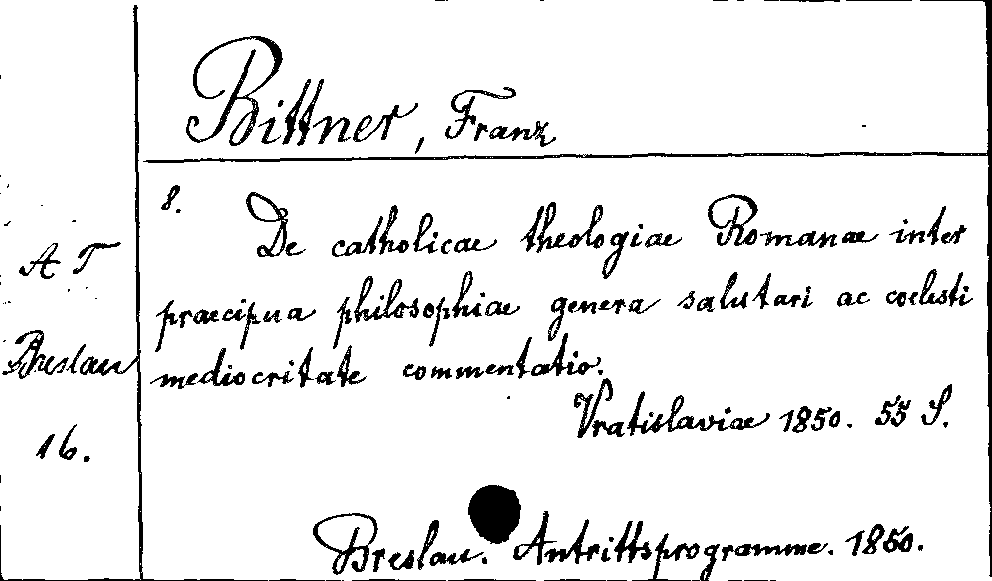 Bittner, Franz
8.
De catholicae theologiae Romanae inter
praecipua philosophiae genera salutari ac coelesti
mediocritate commentatio.
Vratislaviae 1850. 55 S.
Breslau. Antrittsprogramme. 1850.
A T
Breslau
16.